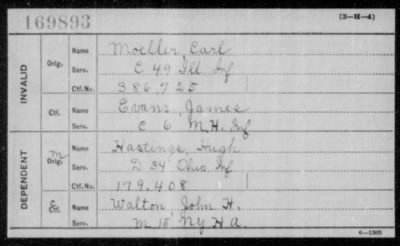 169893
(3—H—4)
INVALID
Orig.
Name Moeller, Carl
Serv. C 49 Ill Inf
Ctf. No. 386,725
Ctf.
Name Evans, James
Serv. C 6 M.H. Inf
DEPENDENT
M
Orig.
Name Hastings, Hugh
Serv. D 34 Ohio Inf
Ctf. No. 179.408
C
Ctf.
Name Walton, John H.
Serv. M 15 NY H A.
6—1303